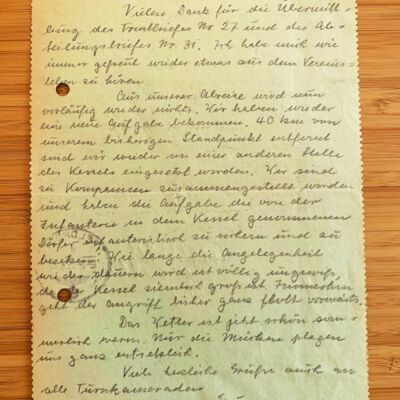 Vielen Dank für die Übermitt-
lung des Frontbriefes Nr 27 und des Ab-
teilungsbriefes Nr. 31. Ich habe mich wie
immer gefreut wieder etwas aus dem Vereins-
leben zu hören.
Aus unserer Abreise wird nun
vorläufig wieder nichts. Wir haben wieder
eine neue Aufgabe bekommen. 40 km von
unserem bisherigen Standpunkt entfernt
sind wir wieder an einer anderen Stelle
des Kessels eingesetzt worden. Wir sind
zu Kompanien zusammengestellt worden
und haben die Aufgabe die von der
Infanterie in dem Kessel genommenen
Dörfer infanteristisch zu sichern und zu
besetzen. Wie lange die Angelegenheit
wieder dauern wird ist völlig ungewiß,
da der Kessel ziemlich groß ist. Immerhin
geht der Angriff bisher ganz flott vorwärts.
Das Wetter ist jetzt schön som-
merlich warm. Nur die Mücken plagen
uns ganz entsetzlich.
Viele herzliche Grüße auch an
alle Turnkameraden